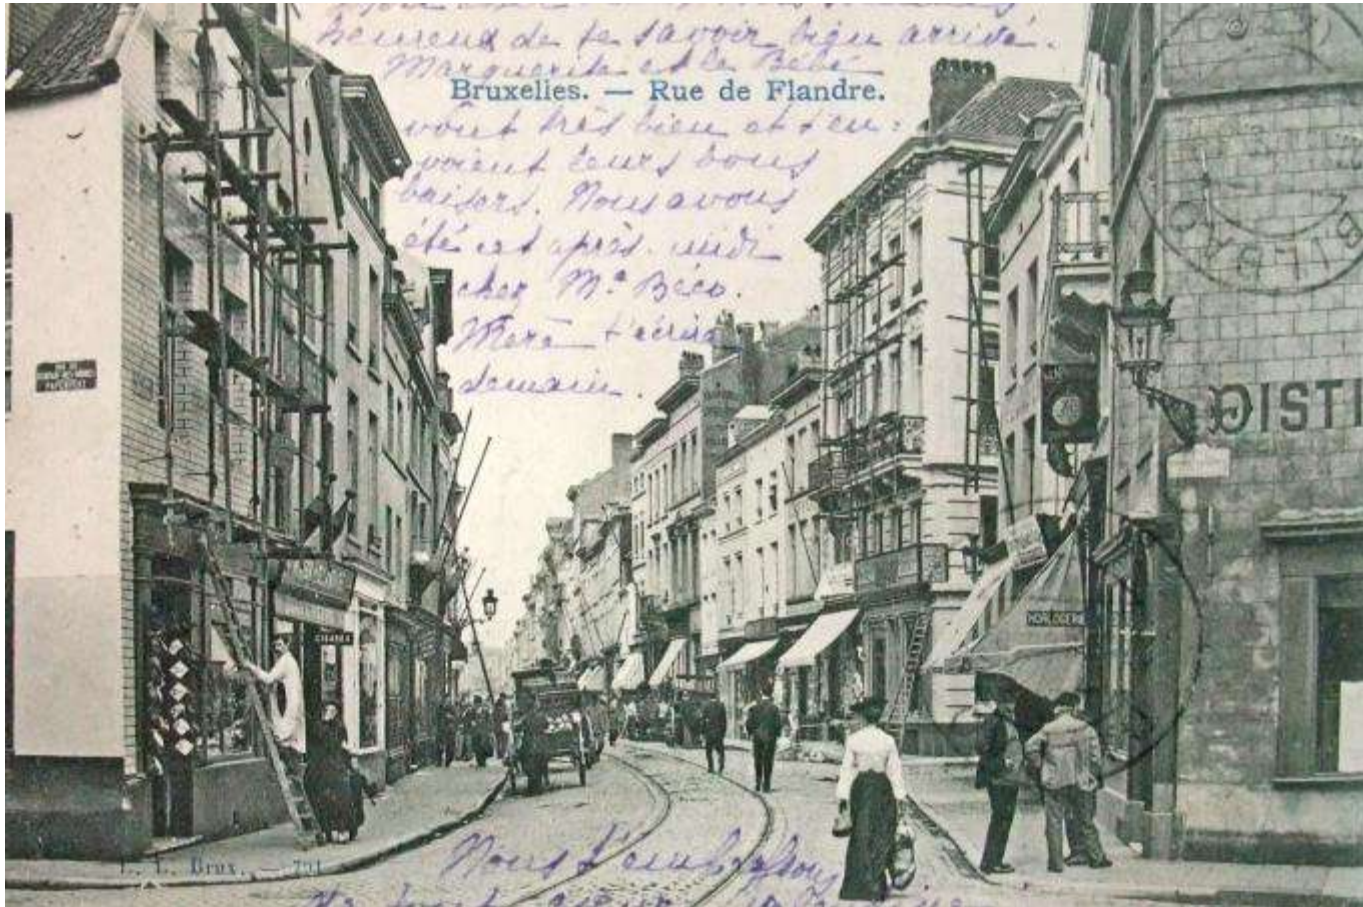 heureux de te savoir bien arrivé.
Marguerite et le Bébé
Bruxelles. — Rue de Flandre.
vont très bien et t'en-
voient leurs bons
baisers. Nous avons
été cet après-midi
chez Mᵐᵉ Béco.
Mère t'écrira
demain.
DISTI
HORLOGERIE
CIGARES
Brux. — 731
Nous t'embrassons
de tout cœur